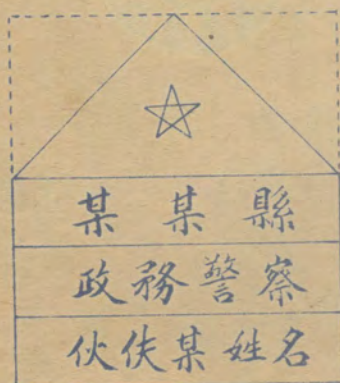 某某縣
政務警察
伙伕某姓名